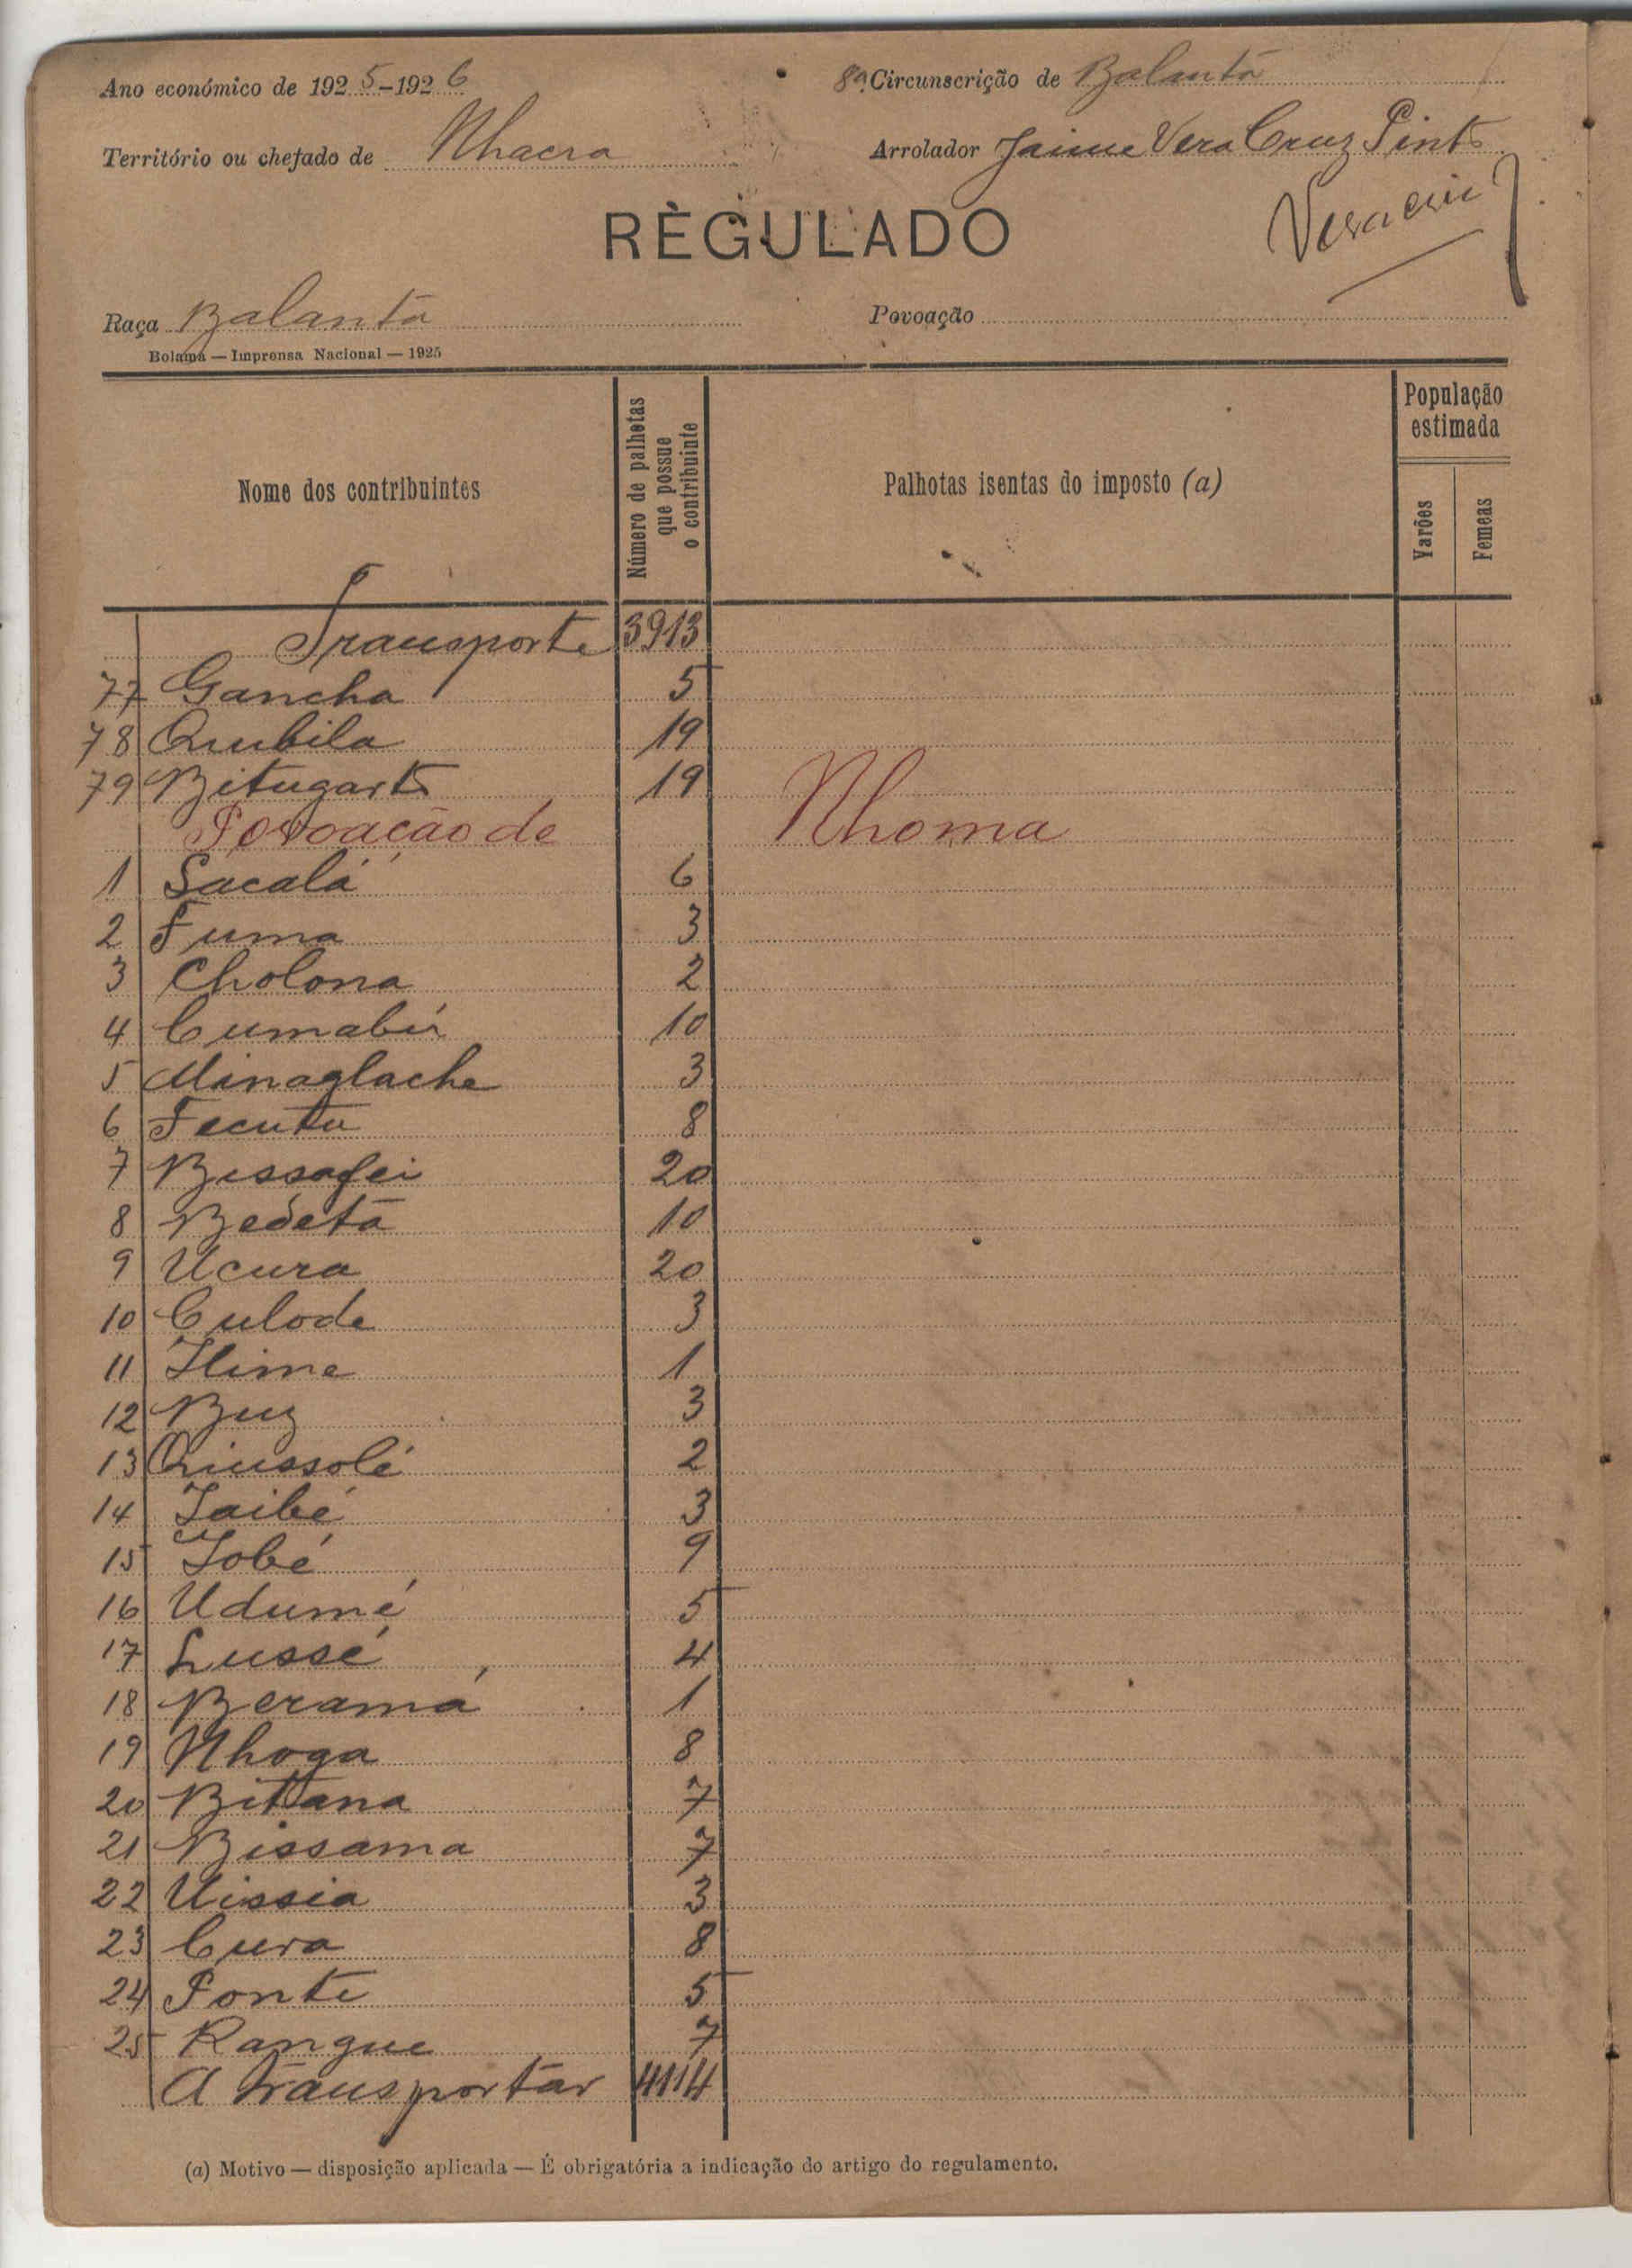 Ano económico de 1925-1926
8ª Circunscrição de Balanta
Território ou chefado de Nhacra
Arrolador Jaime Vera Cruz Pinto
REGULADO
Raça Balanta
Povoação
Bolama — Imprensa Nacional — 1925
Nome dos contribuintes
Número de palhotas que possue o contribuinte
Palhotas isentas do imposto (a)
População estimada
Varões
Femeas
Transporte 3913
77 Gancha 5
78 Quubila 19
79 Bitugarto 19
Povoação de Nhoma
1 Sacalá 6
2 Fuma 3
3 Cholona 2
4 Cumabú 10
5 Minaglache 3
6 Fecuta 8
7 Bissafei 20
8 Bedeta 10
9 Ucura 20
10 Culode 3
11 Ilime 1
12 Buz 3
13 Quiussolé 2
14 Iaibé 3
15 Iobé 9
16 Udumé 5
17 Lussé 4
18 Beramá 1
19 Nhoga 8
20 Bittana 7
21 Bissama 7
22 Uissia 3
23 Cura 8
24 Ponte 5
25 Rangue 7
A transportar 4114
(a) Motivo — disposição aplicada — É obrigatória a indicação do artigo do regulamento.